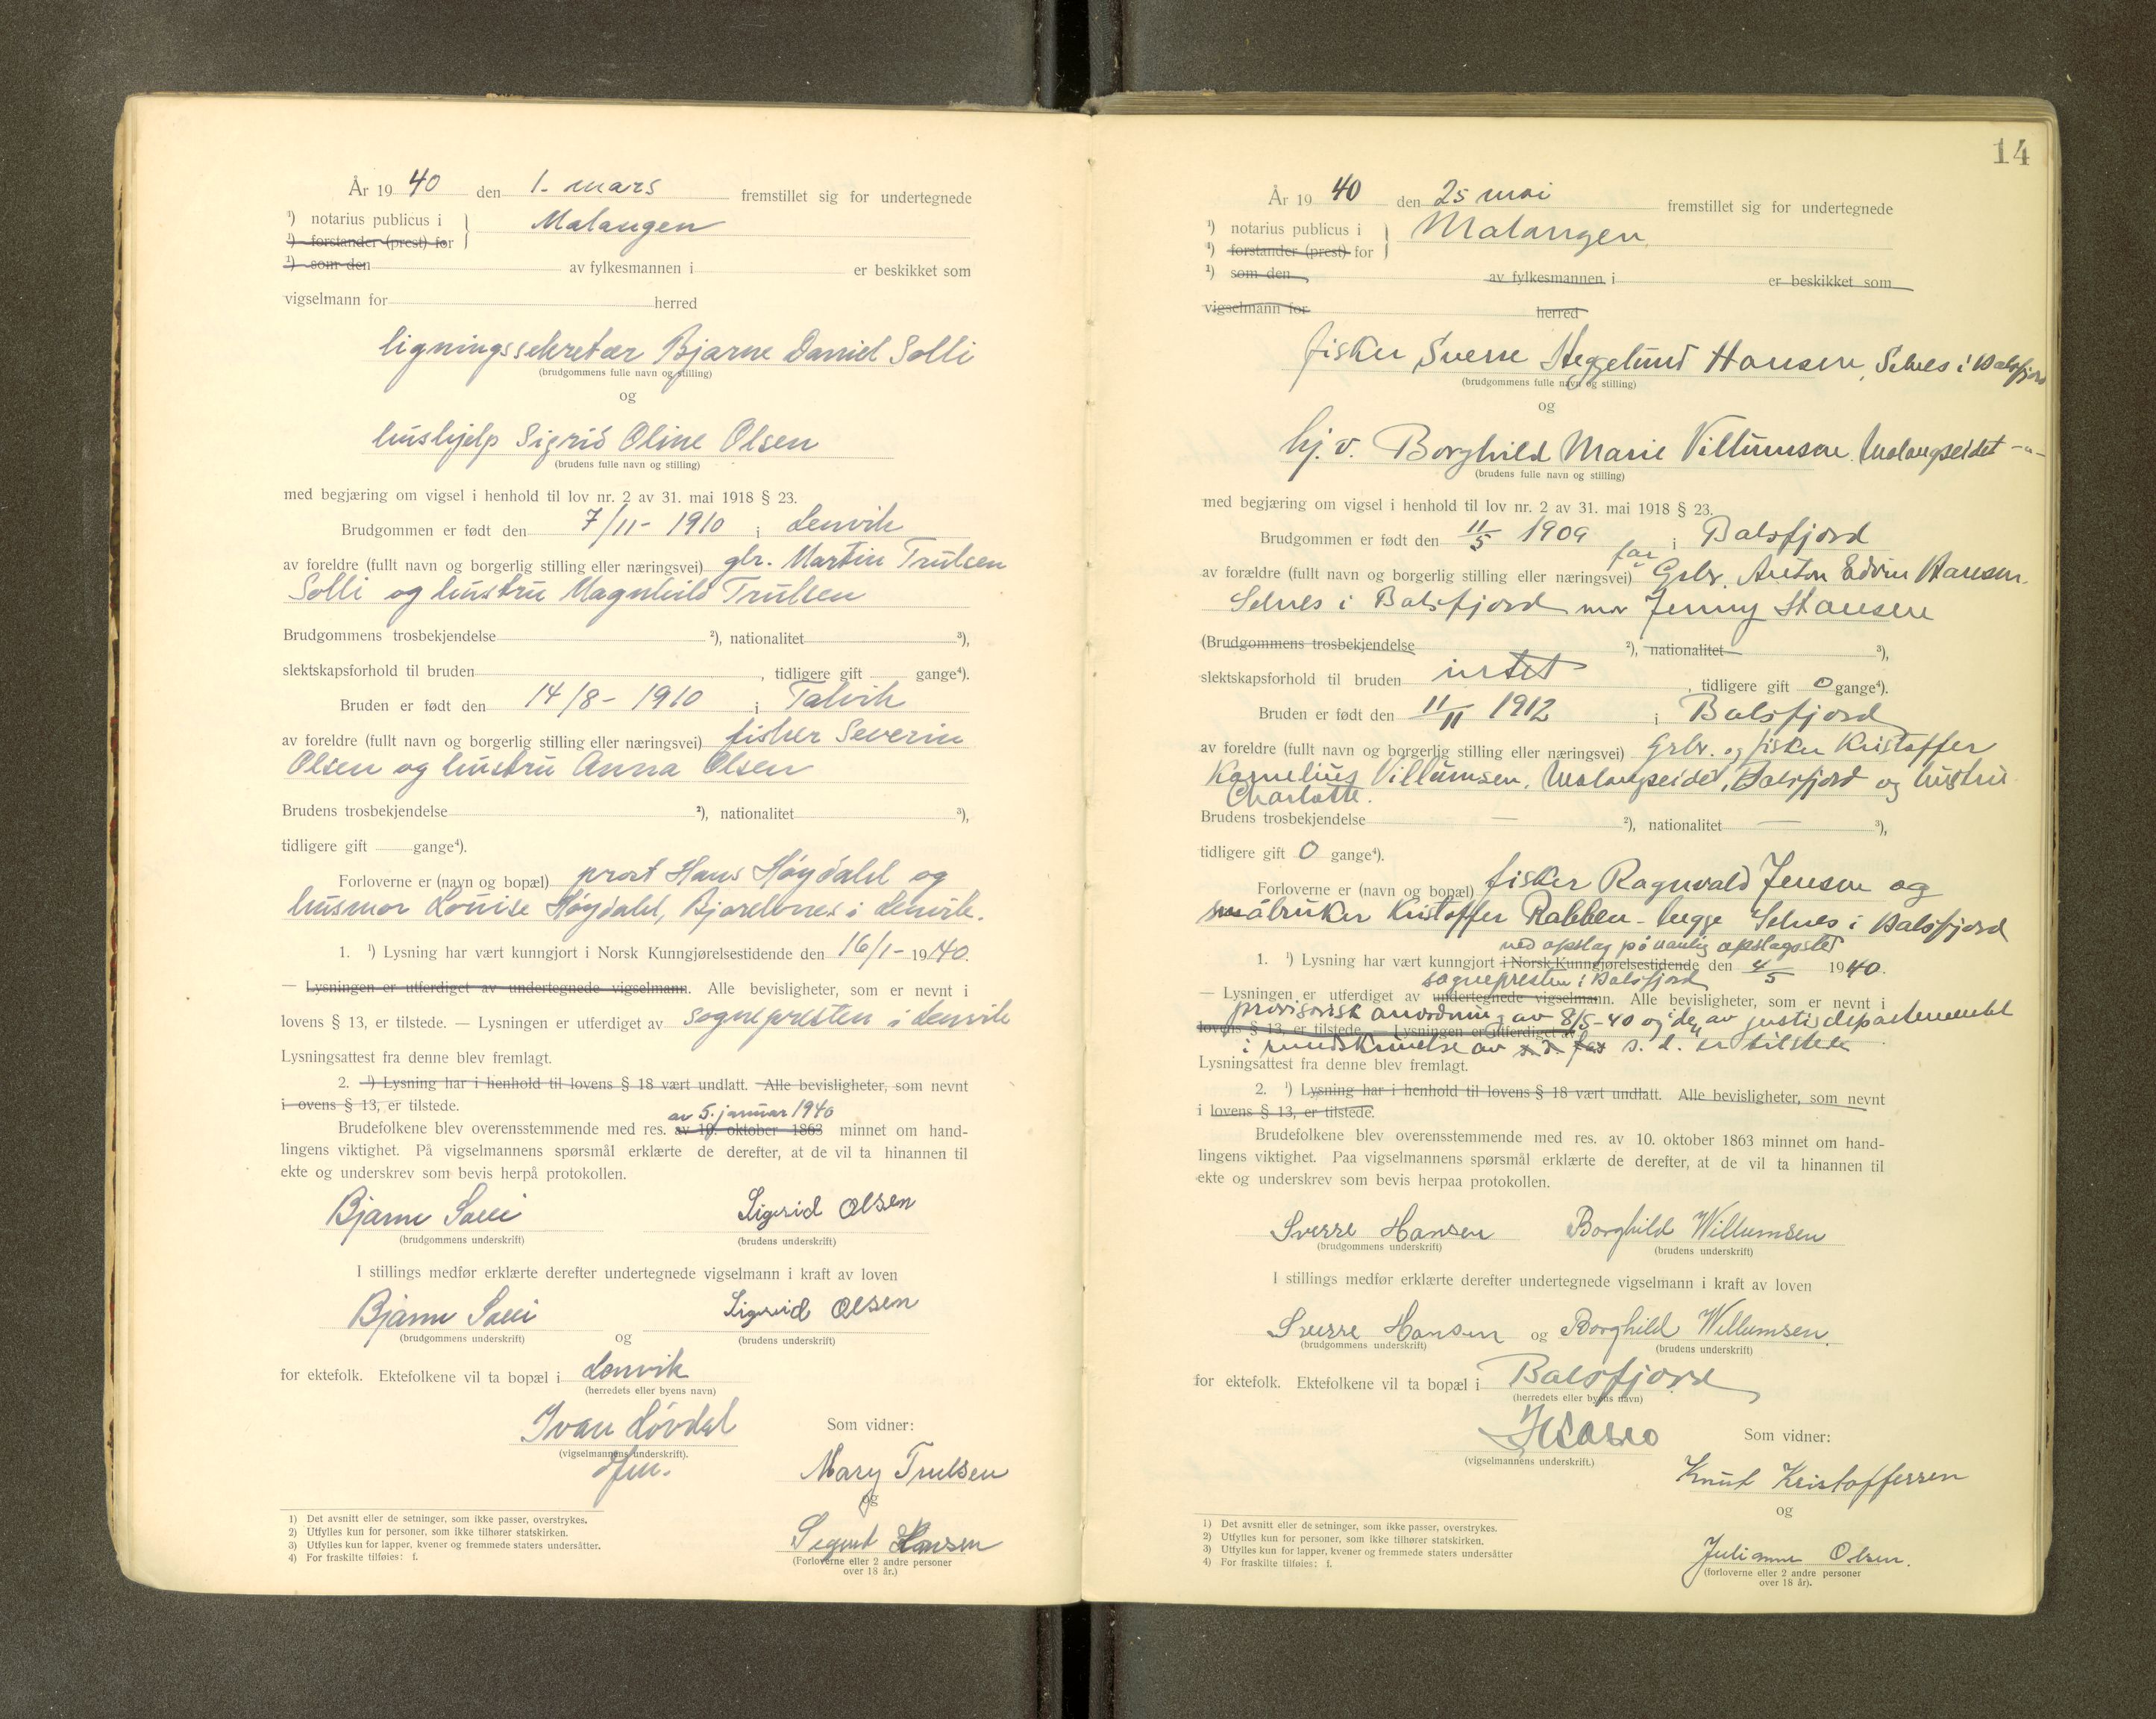 År 1940 den 1. mars fremstillet sig for undertegnede
¹) notarius publicus i } Malangen
¹) forstander (prest) for
¹) som den av fylkesmannen i er beskikket som
vigselmann for herred
ligningssekretær Bjarne Daniel Solli
(brudgommens fulle navn og stilling)
og
hushjelp Sigrid Oline Olsen
(brudens fulle navn og stilling)
med begjæring om vigsel i henhold til lov nr. 2 av 31. mai 1918 § 23.
Brudgommen er født den 7/11- 1910 i Lenvik
av foreldre (fullt navn og borgerlig stilling eller næringsvei) gbr. Martin Trulsen
Solli og hustru Magnhild Trulsen
Brudgommens trosbekjendelse ²), nationalitet ³),
slektskapsforhold til bruden , tidligere gift gange⁴).
Bruden er født den 14/8- 1910 i Talvik
av foreldre (fullt navn og borgerlig stilling eller næringsvei) fisker Severin
Olsen og hustru Anna Olsen
Brudens trosbekjendelse ²), nationalitet ³),
tidligere gift gange⁴).
Forloverne er (navn og bopæl) prost Hans Høydahl og
husmor Louise Høydahl, Bjorelvnes i Lenvik.
1. ¹) Lysning har vært kunngjort i Norsk Kunngjørelsestidende den 16/1- 1940.
— Lysningen er utferdiget av undertegnede vigselmann. Alle bevisligheter, som er nevnt i
lovens § 13, er tilstede. — Lysningen er utferdiget av sognepresten i Lenvik
Lysningsattest fra denne blev fremlagt.
2. ¹) Lysning har i henhold til lovens § 18 vært undlatt. Alle bevisligheter, som nevnt
i ovens § 13, er tilstede.
av 5. januar 1940
Brudefolkene blev overensstemmende med res. av 10. oktober 1863 minnet om hand-
lingens viktighet. På vigselmannens spørsmål erklærte de derefter, at de vil ta hinannen til
ekte og underskrev som bevis herpå protokollen.
Bjarne Solli Sigrid Olsen
(brudgommens underskrift) (brudens underskrift)
I stillings medfør erklærte derefter undertegnede vigselmann i kraft av loven
Bjarne Solli Sigrid Olsen
(brudgommens underskrift) og (brudens underskrift)
for ektefolk. Ektefolkene vil ta bopæl i Lenvik
(herredets eller byens navn)
Ivan Løvdal Som vidner:
(vigselmannens underskrift).
Mary Trulsen
og
Sigurd Hansen
(Forloverne eller 2 andre personer
over 18 år.)
1) Det avsnitt eller de setninger, som ikke passer, overstrykes.
2) Utfylles kun for personer, som ikke tilhører statskirken.
3) Utfylles kun for lapper, kvener og fremmede staters undersåtter.
4) For fraskilte tilføies: f.
14
År 1940 den 25 mai fremstillet sig for undertegnede
¹) notarius publicus i } Malangen
¹) forstander (prest) for
¹) som den av fylkesmannen i er beskikket som
vigselmann for herred
fisker Sverre Heggelund Hansen, Selnes i Balsfjord
(brudgommens fulle navn og stilling)
og
hj. v. Borghild Marie Villumsen. Malangseidet -"-
(brudens fulle navn og stilling)
med begjæring om vigsel i henhold til lov nr. 2 av 31. mai 1918 § 23.
Brudgommen er født den 11/5 1909 i Balsfjord
far
av forældre (fullt navn og borgerlig stilling eller næringsvei) Grbr. Anton Edvin Hansen.
Selnes i Balsfjord mor Jenny Hansen
(Brudgommens trosbekjendelse ²), nationalitet ³),
slektskapsforhold til bruden intet , tidligere gift 0 gange⁴).
Bruden er født den 11/11 1912 i Balsfjord
av foreldre (fullt navn og borgerlig stilling eller næringsvei) Grbr. og fisker Kristoffer
Kornelius Villumsen, Malangseidet, Balsfjord og hustru
Charlotte.
Brudens trosbekjendelse — ²), nationalitet — ³),
tidligere gift 0 gange⁴).
Forloverne er (navn og bopæl) fisker Ragnvald Jensen og
småbruker Kristoffer Rabben - begge Selnes i Balsfjord
ved opslag på vanlig opslagssted
1. ¹) Lysning har vært kunngjort i Norsk Kunngjørelsestidende den 4/5 1940.
sognepresten i Balsfjord
— Lysningen er utferdiget av undertegnede vigselmann. Alle bevisligheter, som er nevnt i
provisorisk anordning av 8/5-40 og i den av justisdepartementet
lovens § 13, er tilstede. — Lysningen er utferdiget av
i rundskrivelse av s. d. er tilstede
Lysningsattest fra denne blev fremlagt.
2. ¹) Lysning har i henhold til lovens § 18 vært undlatt. Alle bevisligheter, som nevnt
i lovens § 13, er tilstede.
Brudefolkene blev overensstemmende med res. av 10. oktober 1863 minnet om hand-
lingens viktighet. Paa vigselmannens spørsmål erklærte de derefter, at de vil ta hinannen til
ekte og underskrev som bevis herpaa protokollen.
Sverre Hansen Borghild Willumsen
(brudgommens underskrift) (brudens underskrift)
I stillings medfør erklærte derefter undertegnede vigselmann i kraft av loven
Sverre Hansen og Borghild Willumsen.
(brudgommens underskrift) (brudens underskrift)
for ektefolk. Ektefolkene vil ta bopæl i Balsfjord
(herredets eller byens navn)
Som vidner:
(vigselmannens underskrift.)
Knut Kristoffersen
og
Julianne Olsen.
(forloverne eller 2 andre personer
over 18 år).
1) Det avsnitt eller de setninger, som ikke passer, overstrykes.
2) Utfylles kun for personer, som ikke tilhører statskirken.
3) Utfylles kun for lapper, kvener og fremmede staters undersåtter
4) For fraskilte tilføies: f.